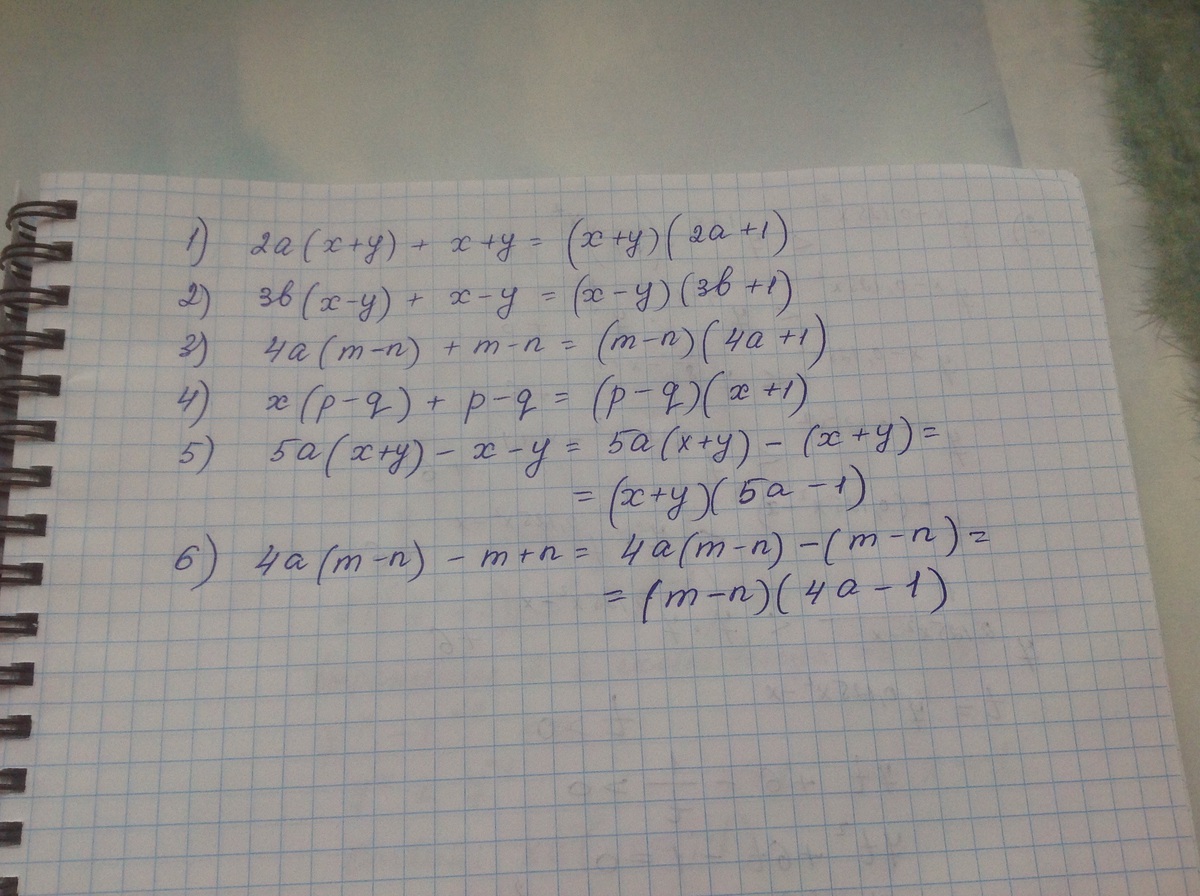 1) 2a(x+y) + x+y = (x+y)(2a+1)
2) 3в(x-y) + x-y = (x-y)(3в+1)
3) 4a(m-n) + m-n = (m-n)(4a+1)
4) x(p-q) + p-q = (p-q)(x+1)
5) 5a(x+y) - x-y = 5a(x+y) - (x+y) =
= (x+y)(5a-1)
6) 4a(m-n) - m+n = 4a(m-n) - (m-n) =
= (m-n)(4a-1)